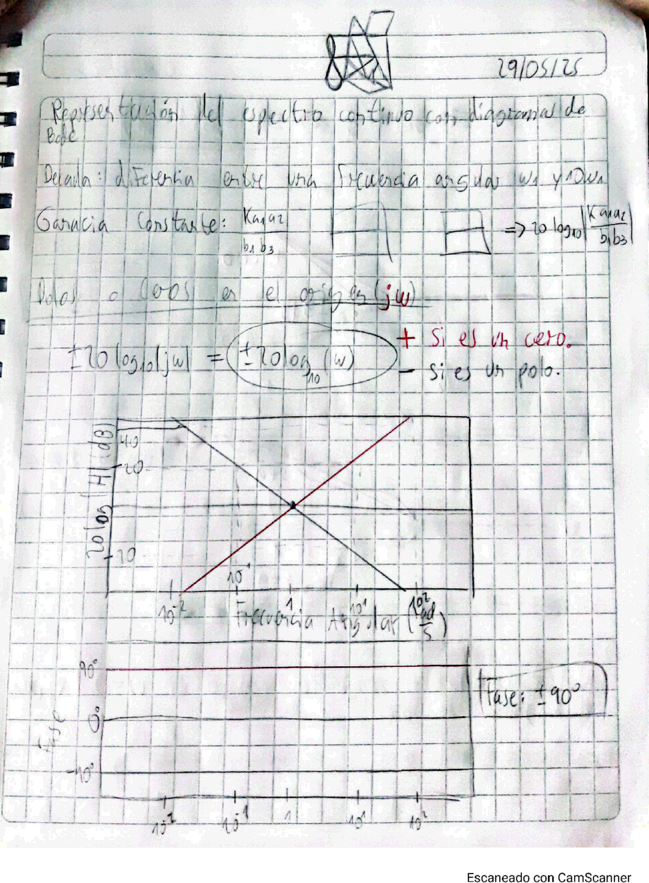 29/05/25
Representación del espectro continuo con diagramas de
Bode
Decada: diferencia entre una frecuencia angular w1 y 10w1
Ganacia Constante: Ka1a2 / b1b3 => 20 log10 |Ka1a2 / b1b3|
Polos o Ceros en el origen (jw)
±20 log10|jw| = ±20 log10 (w)
+ si es un cero.
- si es un polo.
20 log |H| (dB)
40
20
20
10^-2 10^-1 1 10^1 10^2
Frecuencia Angular (rad/s)
90°
Fase: ±90°
Fase
0°
-90°
10^-2 10^-1 1 10^1 10^2
Escaneado con CamScanner